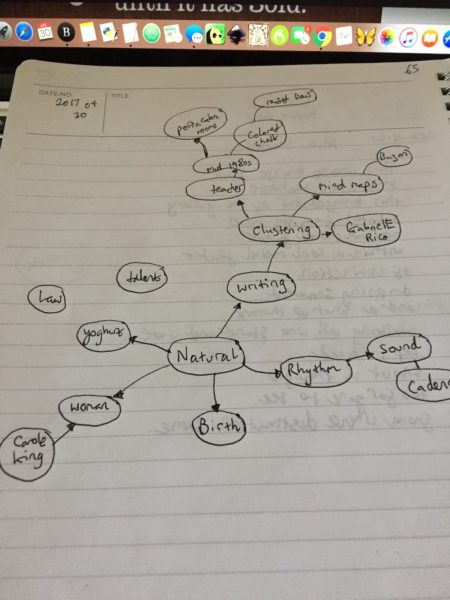 until it has Sold.
65
DATE/NO.
TITLE
2017 04
20
mixed Days
portacabin
rooms
Colored
chalk
mid 1980s
Buzan
teacher
mind maps
Clustering
GabriellE
Rico
talent
writing
Law
yoghurt
Natural
Sound
Rhythm
Cadenc
woman
Birth
Carole
king